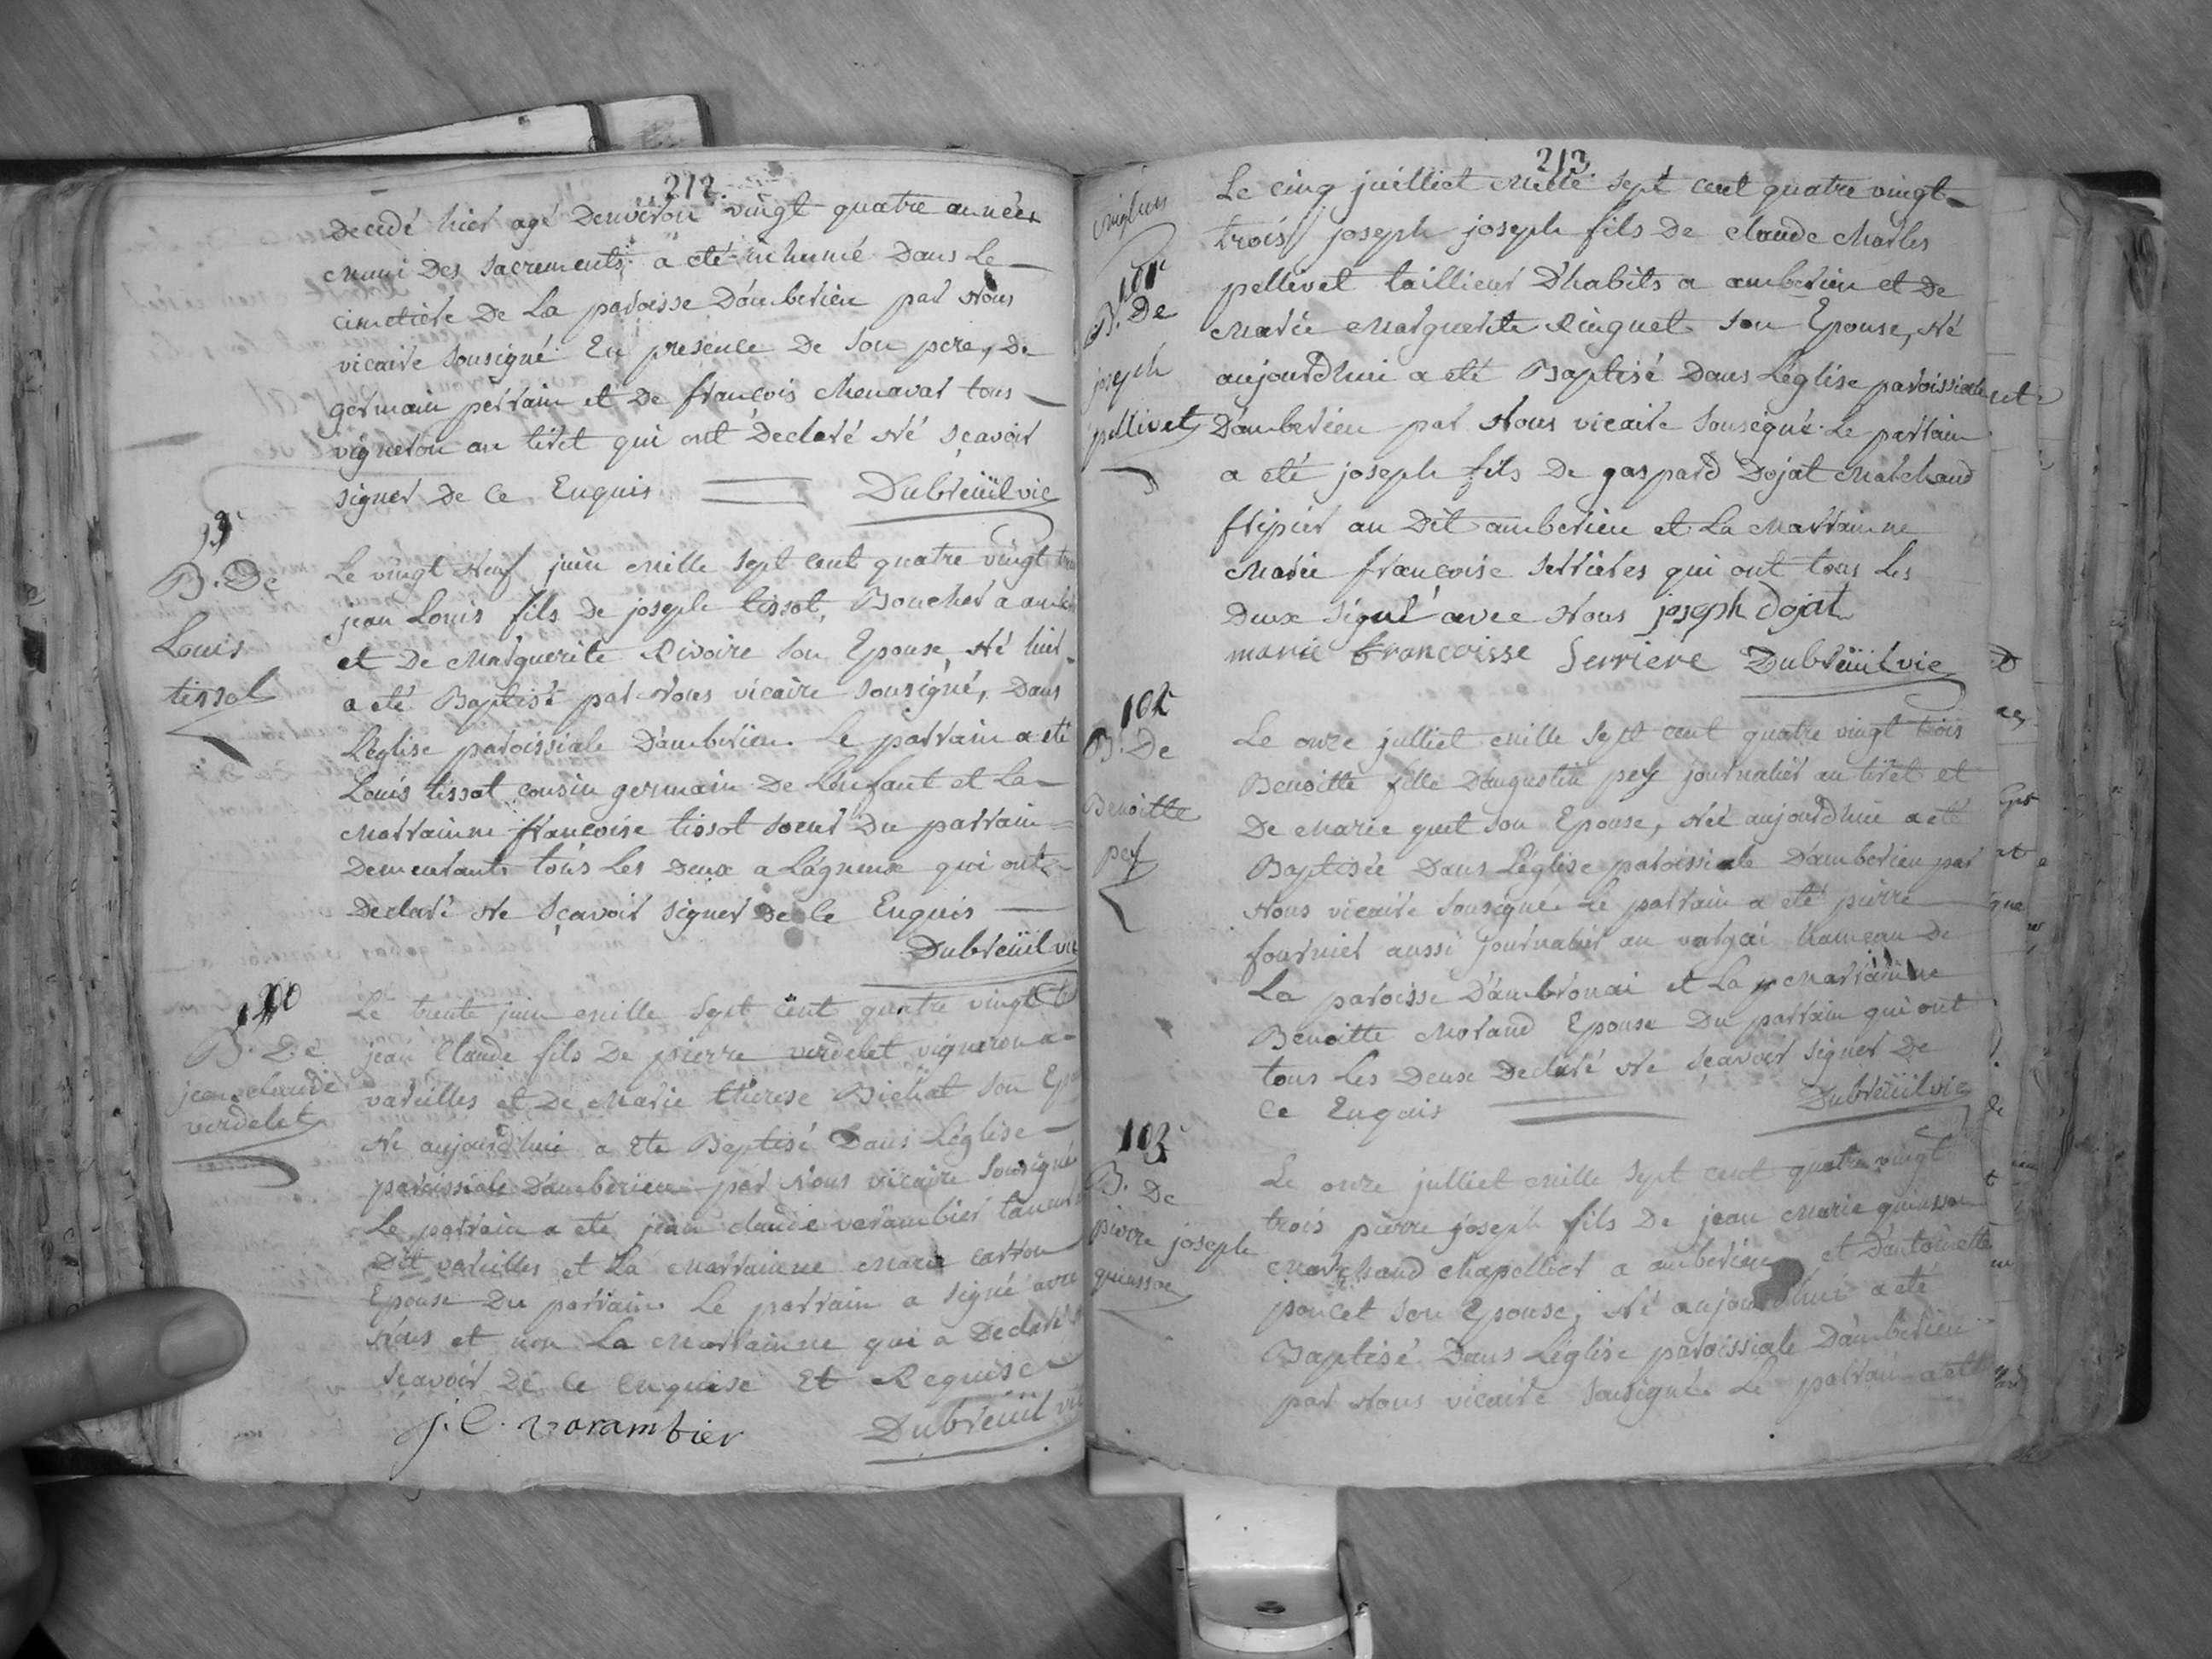 212
decedé hier agé Denviron vingt quatre années
muni Des Sacrements, a eté inhumé Dans Le
cimetiere De La paroisse D'amberieu par Nous
vicaire Sousigné En presence De Son pere, De
germain perrain et De françois chenavar tous
vigneron au tiret qui ont Declaré Né Sçavoir
signer De Ce Enquis Dubreüil vic
99e
B. De
Louis
tissot
Le vingt Neuf juin mille Sept cent quatre vingt
jean Louis fils De joseph tissot, Boucher a
et De Marguerite Rivoire Son Epouse, Né hier
a eté Baptisé par Nous vicaire Sousigné, Dans
L'eglise paroissiale D'amberieu. Le parrain a eté
Louis tissot cousin germain De L'enfant et La
Marrainne françoise tissot Soeur Du parrain
Demeurants tous Les Deux a Lagneux qui ont
Declaré Ne Sçavoir signer De Ce Enquis
Dubreüil vic
100
B. De
jean claude
verdelet
Le trente juin mille Sept cent quatre vingt
jean Claude fils De pierre verdelet vigneron a
vareilles et De Marie therese Bichat Son
Né aujourd'hui a Eté Baptisé Dans L'église
paroissiale D'amberieu par Nous vicaire Sousigné
Le parrain a eté jean claude varambier
Dit vareilles et La Marrainne Marie carron
Epouse Du parrain. Le parrain a Signé avec
Nous et non La Marrainne qui a Declaré
Sçavoir De Ce Enquise Et Requise
j. C. varambier Dubreüil vic
213
101e
B. De
joseph
pellivet
Le cinq juilliet Mille Sept cent quatre vingt
trois joseph joseph fils De claude Charles
pellivet taillieur D'habits a amberieu et De
Marie Marguerite Ringuet Son Epouse, Né
aujourd'hui a eté Baptisé Dans L'églïse paroissiale
D'amberieu par Nous vicaire Sousigné. Le parrain
a eté joseph fils De gaspard Dojat Marchand
fripier au Dit amberieu et La Marrainne
Marie françoise Serrieres qui ont tous Les
Deux signé avec Nous joseph dojat
marie francoisse Serriere Dubreüil vic
102e
B. De
Benoitte
pey
Le onze julliet mille Sept cent quatre vingt trois
Benoitte fille D'augustin pey journalier au tiret et
De Marie guet Son Epouse, Néé aujourd'hui a eté
Baptisée Dans L'église paroissiale D'amberieu par
Nous vicaire Sousigné. Le parrain a eté pierre
fournier aussi journalier au hameau De
La paroisse D'ambronai et La Marrainne
Benoitte Morand Epouse Du parrain qui ont
tous Les Deux Declaré Ne Sçavoir signer De
Ce Enquis Dubreüil vic
103e
B. De
pierre joseph
quinson
Le onze julliet mille Sept cent quatre vingt
trois pierre joseph fils De jean Marie quinson
Marchand chapellier a amberieu et D'antoinette
poncet Son Epouse, Né aujourd'hui a eté
Baptisé Dans L'église paroissiale D'amberieu
par Nous vicaire Sousigné. Le parrain a eté